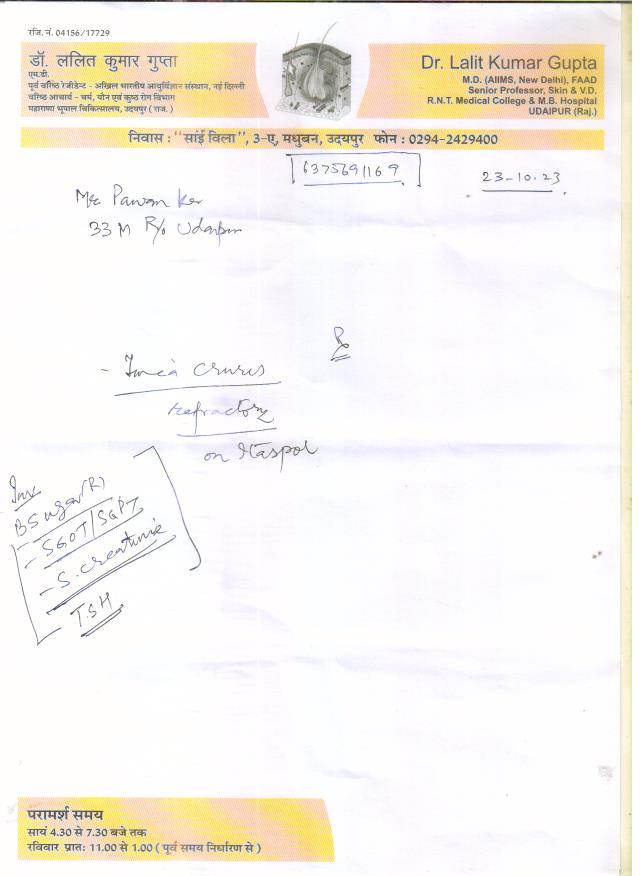 रजि. नं. 04156/17729
डॉ. ललित कुमार गुप्ता
एम.डी.
पूर्व वरिष्ठ रेजीडेन्ट - अखिल भारतीय आयुर्विज्ञान संस्थान, नई दिल्ली
वरिष्ठ आचार्य - चर्म, यौन एवं कुष्ठ रोग विभाग
महाराणा भूपाल चिकित्सालय, उदयपुर ( राज. )
Dr. Lalit Kumar Gupta
M.D. (AIIMS, New Delhi), FAAD
Senior Professor, Skin & V.D.
R.N.T. Medical College & M.B. Hospital
UDAIPUR (Raj.)
निवास : "सांई विला", 3-ए, मधुबन, उदयपुर फोन : 0294-2429400
6375691169
23-10.23
Mr. Pawan
33 M R/o Udaipur
Rx
- Tinea cruris
refractory
on Itaspor
Inv
B Sugar (R)
- SGOT/SGPT
- S. Creatinine
- TSH
परामर्श समय
सायं 4.30 से 7.30 बजे तक
रविवार प्रात: 11.00 से 1.00 ( पूर्व समय निर्धारण से )